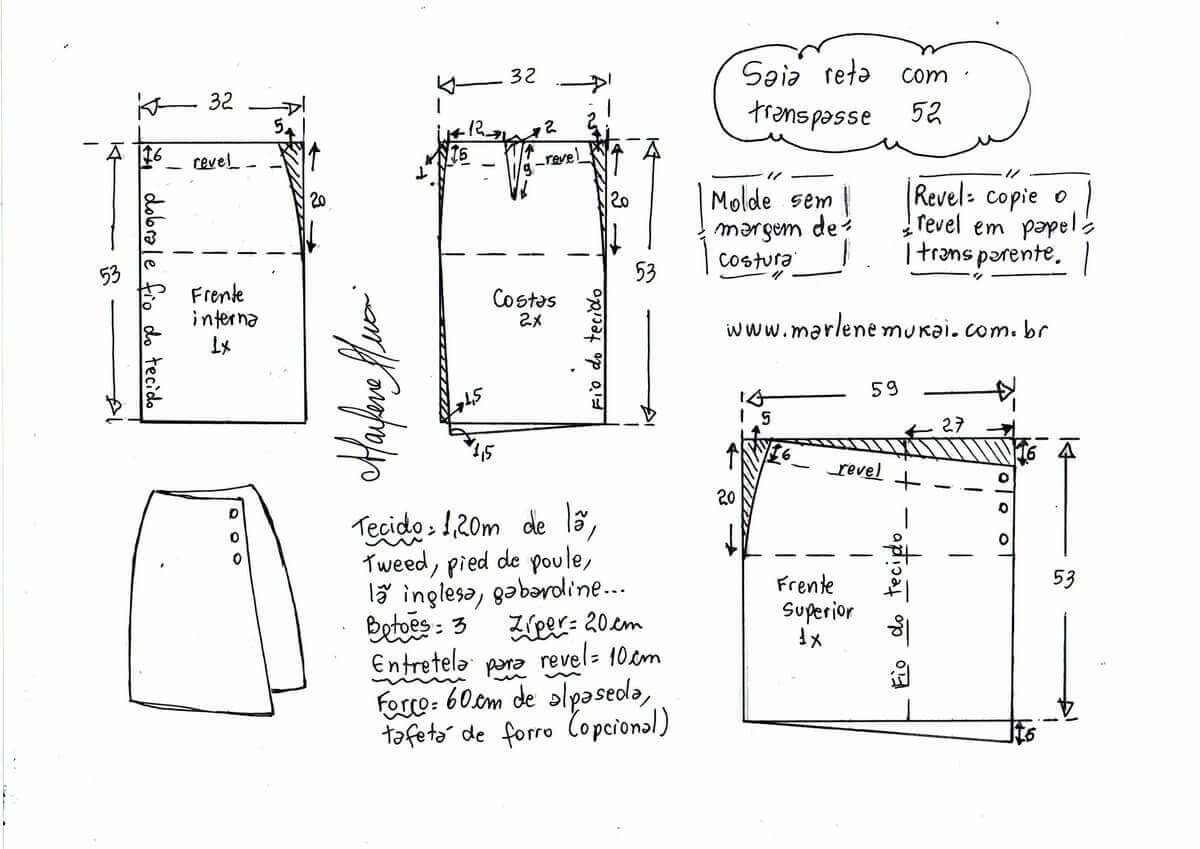 Saia reta com
transpasse 52
Molde sem
margem de
costura
Revel= copie o
revel em papel
transparente.
www.marlenemukai.com.br
32
5
6
revel
20
53
dobra e fio do tecido
Frente
interna
1x
32
12
2
2
1
6
revel
9
20
53
Costas
2x
Fio do tecido
1,5
1,5
59
27
5
6
6
revel
20
53
Fio do tecido
Frente
Superior
1x
6
Tecido= 1,20m de lã,
tweed, pied de poule,
lã inglesa, gabardine...
Botões= 3 Zíper= 20cm
Entretela para revel= 10cm
Forro= 60cm de alpaseda,
tafetá de forro (opcional)